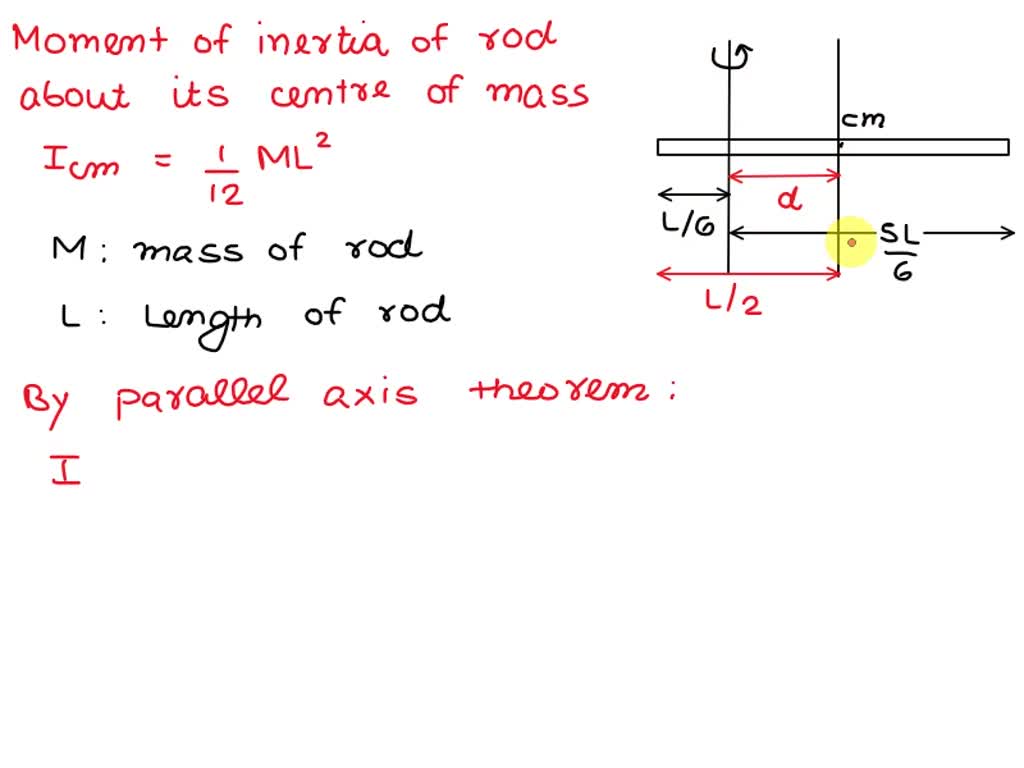 Moment of inertia of rod
about its centre of mass
Icm = 1/12 ML²
M: mass of rod
L: Length of rod
By parallel axis theorem:
I
cm
d
L/6
5L/6
L/2